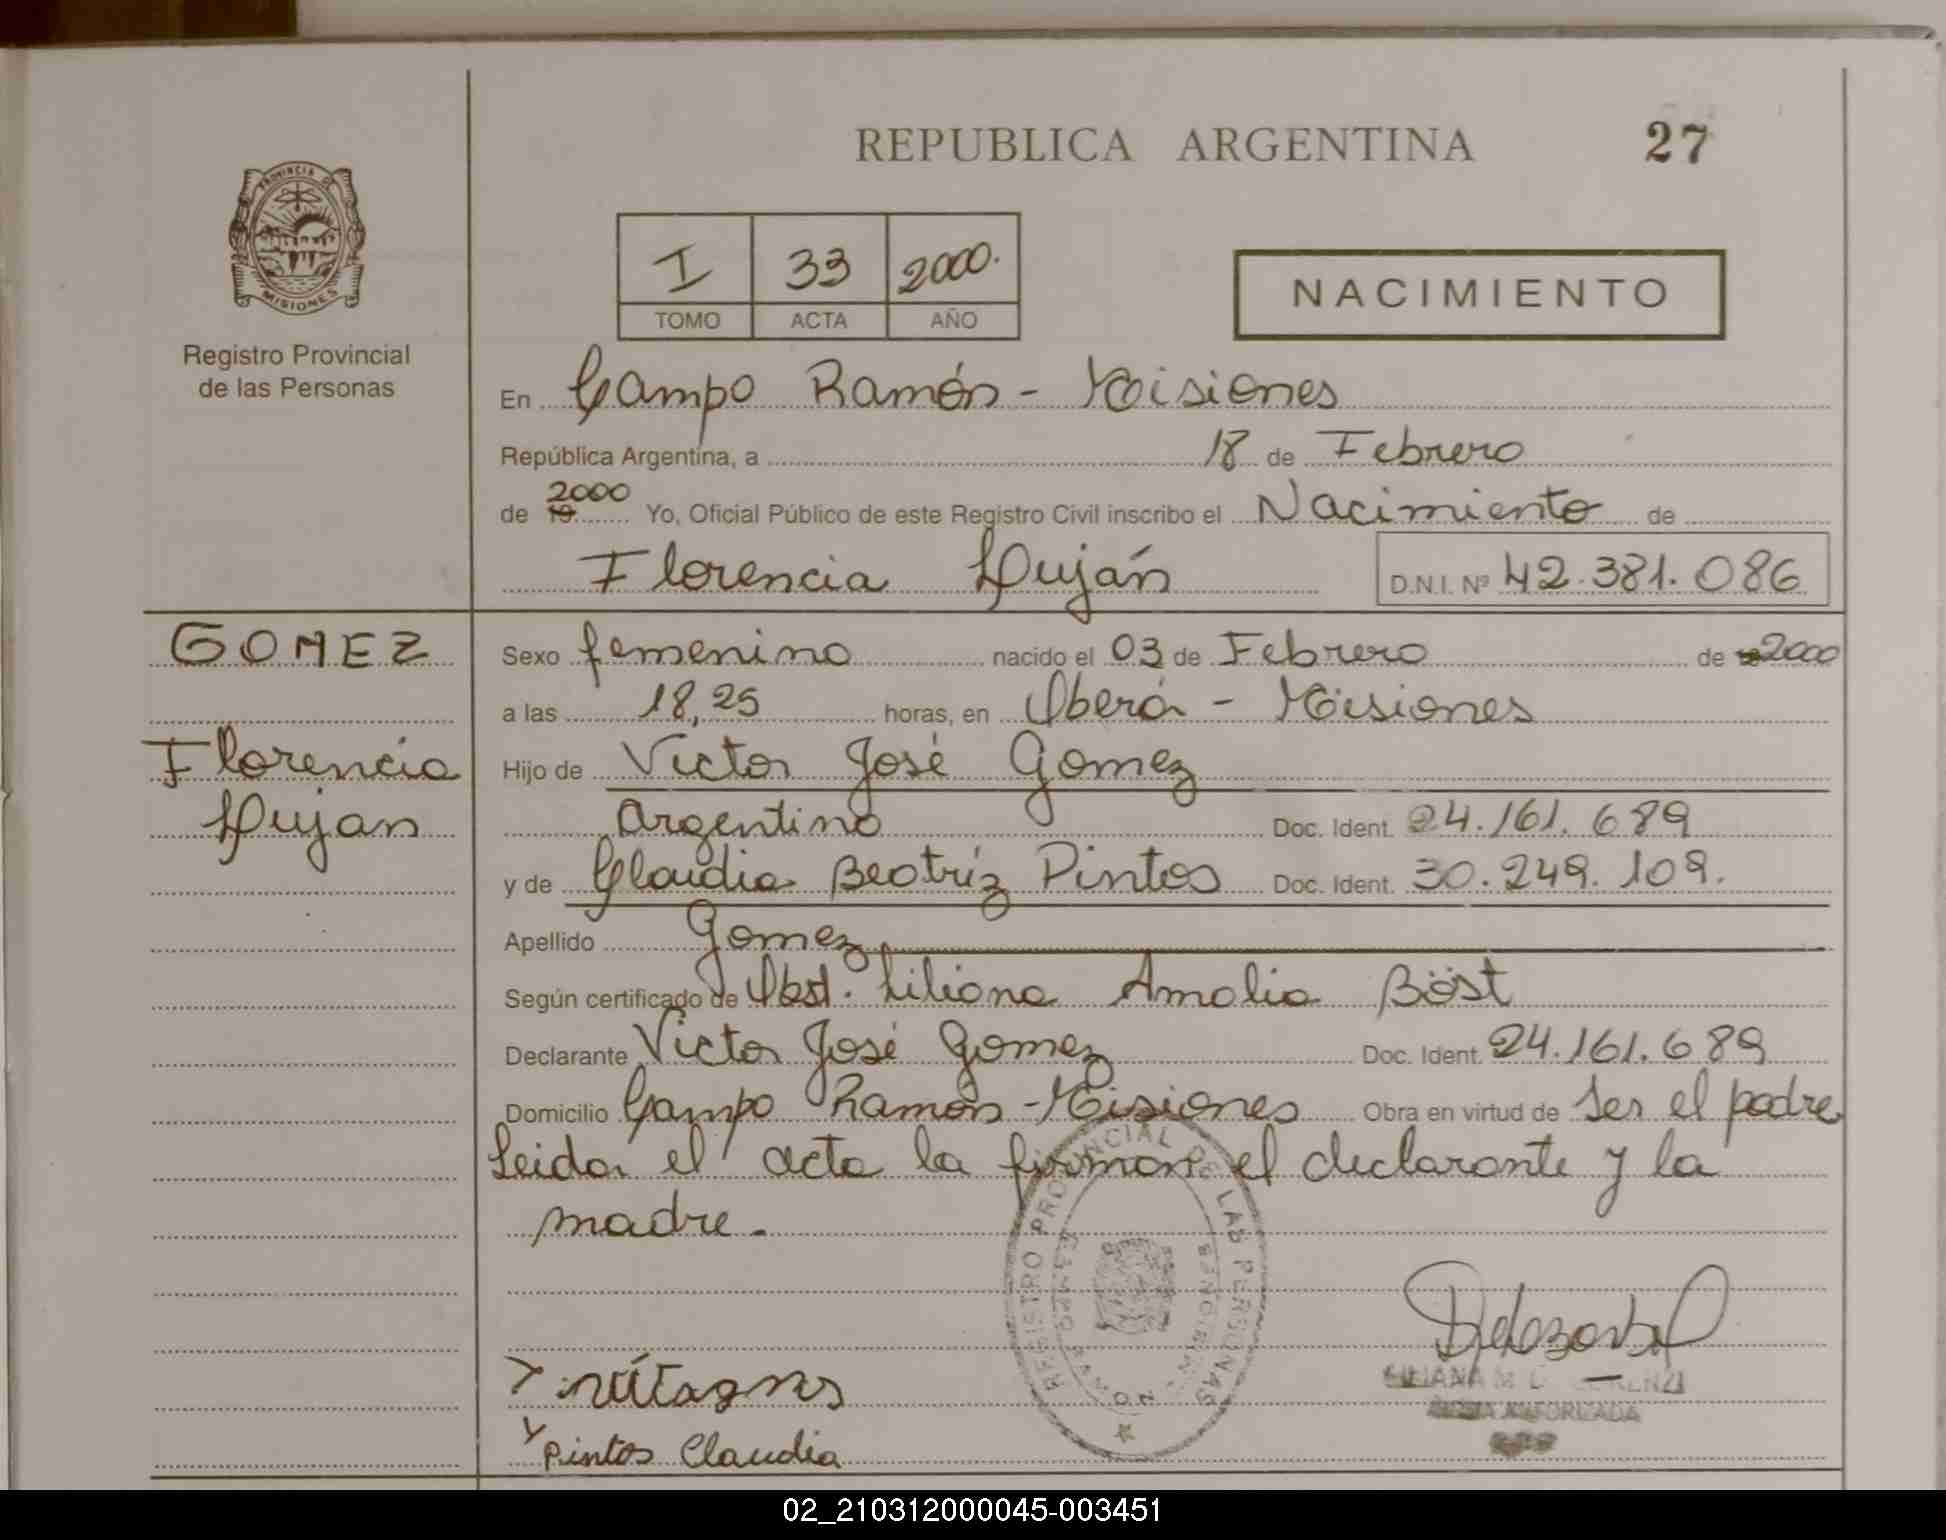 REPUBLICA ARGENTINA 27
PROVINCIA DE
MISIONES
Registro Provincial
de las Personas
I 33 2000.
TOMO ACTA AÑO
NACIMIENTO
En Campo Ramón - Misiones
República Argentina, a 18 de Febrero
de 19 2000 Yo, Oficial Público de este Registro Civil inscribo el Nacimiento de
Florencia Luján D.N.I. Nº 42.381.086
GOMEZ
Florencia
Lujan
Sexo femenino nacido el 03 de Febrero de 2000
a las 18,25 horas, en Oberá - Misiones
Hijo de Victor José Gomez
Argentino Doc. Ident. 24.161.689
y de Claudia Beatríz Pintos Doc. Ident. 30.249.109.
Apellido Gomez
Según certificado de Obst. Liliana Amalia Böst
Declarante Victor José Gomez Doc. Ident. 24.161.689
Domicilio Campo Ramón - Misiones Obra en virtud de Ser el padre
Leida el acta la firman el declarante y la
madre.
REGISTRO PROVINCIAL DE LAS PERSONAS
CAMPO RAMON
MISIONES
LILIANA M.
AUTORIZADA
Pintos Claudia
02_210312000045-003451